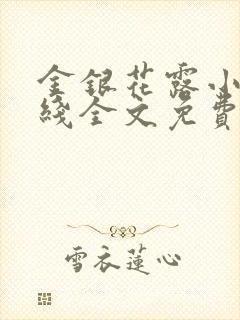 金銀花露小
綫全文免費
雪衣蓮心